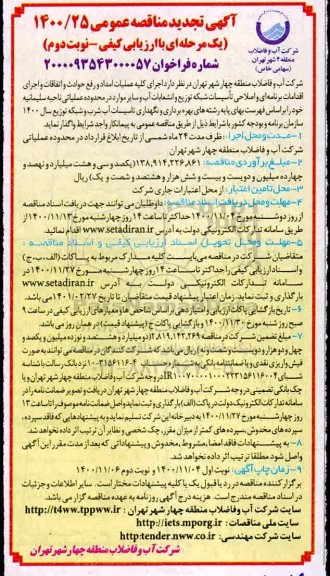 آگهی تجدید مناقصه عمومی ۱۴۰۰/۲۵
(یک مرحله ای با ارزیابی کیفی - نوبت دوم)
شماره فراخوان ۲۰۰۰۰۹۳۵۴۳۰۰۰۰۵۷
شرکت آب و فاضلاب
منطقه ۴ شهر تهران
(سهامی خاص)
شرکت آب و فاضلاب منطقه چهار شهر تهران در نظر دارد اجرای کلیه عملیات امداد و رفع حوادث و اتفاقات و اجرای
اقدامات برنامه ای و اصلاحی تأسیسات شبکه توزیع و انشعابات آب و سایر موارد در محدوده عملیاتی ناحیه سلیمانیه
خود را بر اساس فهرست بهای پایه رشته بهره برداری و نگهداری تاسیسات آب شرب و شبکه توزیع سال ۱۴۰۰
سازمان برنامه و بودجه کشور با شرایط ذیل از طریق مناقصه عمومی به پیمانکار واجد شرایط واگذار نماید.
۱- مدت و محل اجرا: ظرف مدت ۲۴ ماه شمسی از تاریخ ابلاغ قرارداد در محدوده عملیاتی
شرکت آب و فاضلاب منطقه چهار شهر تهران
۲- مبلغ برآوردی مناقصه: ۱۳۸,۹۱۴,۲۲۶,۸۶۱ (یکصد و سی و هشت میلیارد و نهصد و
چهارده میلیون و دویست و بیست و شش هزار و هشتصد و شصت و یک) ریال
۳- محل تامین اعتبار: از محل اعتبارات جاری شرکت
۴- مهلت و محل دریافت اسناد مناقصه: داوطلبان می توانند جهت دریافت اسناد مناقصه
از روز دوشنبه مورخ ۱۴۰۰/۱۱/۰۴ حداکثر تا ساعت ۱۴ روز چهارشنبه مورخ ۱۴۰۰/۱۱/۱۳ از
طریق سامانه تدارکات الکترونیکی دولت به آدرس www.setadiran.ir اقدام نمائید.
۵- مهلت و محل تحویل اسناد ارزیابی کیفی و اسناد مناقصه:
متقاضیان شرکت در مناقصه می بایست کلیه مدارک مربوط به پاکات (الف، ب، ج)
و اسناد ارزیابی کیفی را حداکثر تا ساعت ۱۴ روز چهارشنبه مورخ ۱۴۰۰/۱۱/۲۷ در
سامانه تدارکات الکترونیکی دولت به آدرس www.setadiran.ir
بارگذاری و ثبت نماید. زمان اعتبار پیشنهاد قیمت متقاضیان تا تاریخ ۱۴۰۱/۰۲/۲۷ می باشد.
۶- تاریخ بازگشایی پاکات ارزیابی و امتیازدهی بر اساس شاخص ها و معیارهای ارزیابی کیفی در ساعت ۹
صبح روز شنبه مورخ ۱۴۰۰/۱۱/۳۰ و بازگشایی پاکات ج (پیشنهاد قیمت) در همان روز می باشد.
۷- مبلغ تضمین شرکت در مناقصه
سپرده های مخدوش، سپرده های کمتر از میزان مقرر، چک شخصی و نظایر آن ترتیب اثر داده نخواهد شد.
۸- به پیشنهادات فاقد امضا، مشروط، مخدوش و پیشنهاداتی که بعد از مدت مقرر این آگهی
واصل می شود مطلقا ترتیب اثر داده نخواهد شد.
۹- زمان چاپ آگهی: نوبت اول ۱۴۰۰/۱۱/۰۴ و نوبت دوم ۱۴۰۰/۱۱/۰۶
برگزار کننده مناقصه در رد یا قبول یک یا کلیه پیشنهادات مختار است. سایر اطلاعات و جزئیات
در اسناد مناقصه مندرج است. هزینه درج آگهی روزنامه به عهده مناقصه گزار می باشد.
سایت شرکت آب و فاضلاب منطقه چهار شهر تهران: http://t4ww.tpww.ir
سایت ملی مناقصات: http://iets.mporg.ir
سایت شرکت مهندسی: http:tender.nww.co.ir
شرکت آب و فاضلاب منطقه چهار شهر تهران